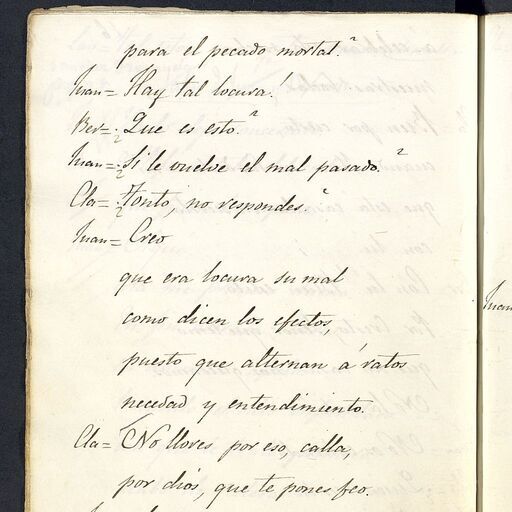 para el pecado mortal?
Juan = Hay tal locura!
Ber = ¿Que es esto?
Juan = ¿Si le vuelve el mal pasado?
Cla = ¿Tonto, no respondes?
Juan = Creo
que era locura su mal
como dicen los efectos,
puesto que alternan á ratos
necedad y entendimiento.
Cla = No llores por eso, calla,
por dios, que te pones feo.
Juan